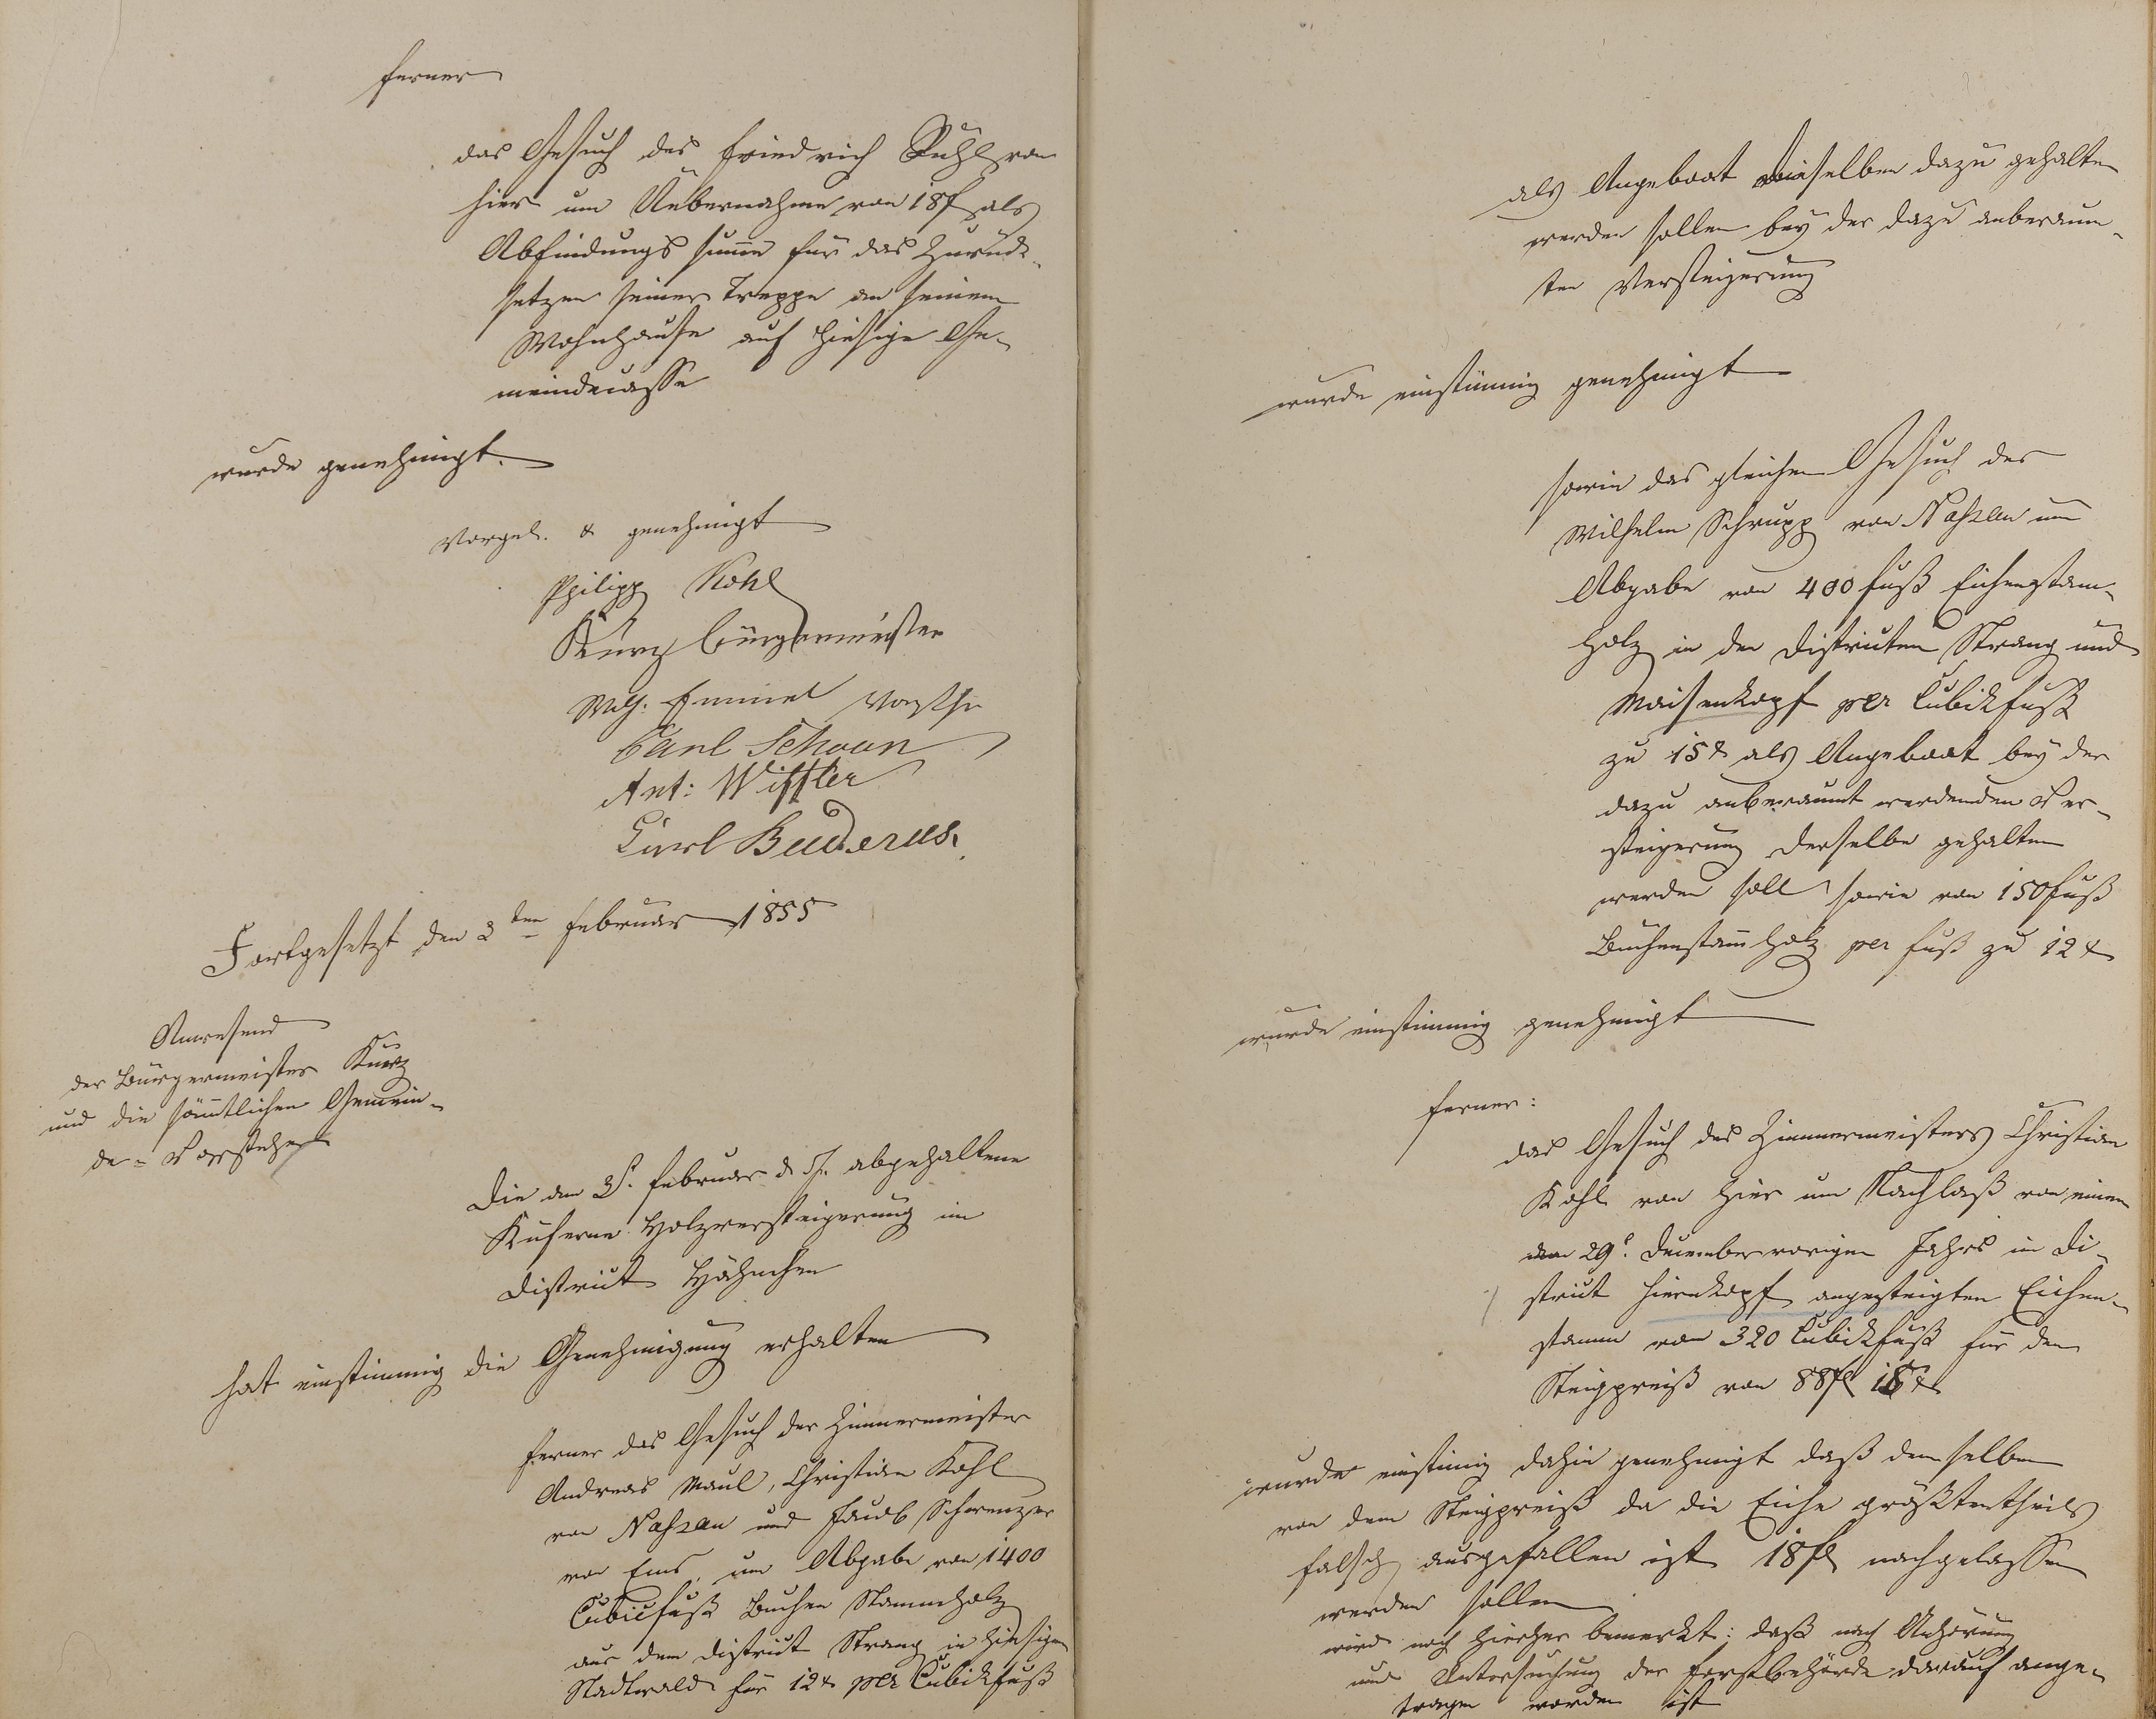 ferner
das Gesuch des Friedrich Buhl von
hier um Uebernahme von 18 f als
Abfindungs summe für das Zurück-
setzen seiner Treppe an seinem
Wohnhause auf hiesige Ge-
meindecasse
wurde genehmigt.
Vorgel. & genehmigt
Philipp Kohl
Kurz Bürgermeister
Wilh. Emmel Vorsthr
Carl Schoan
Ant: Wiffler
Carl Buderus.
Fortgesetzt den 3ten Februar 1855
Anwesend
der Bürgermeister Kurz
und die sämtlichen Gemein-
de-Vorsteher
Die am 3t. Februar d. J. abgehaltene
Holzversteigerung im
District Höhnchen
hat einstimmig die Genehmigung erhalten
ferner das Gesuch der Zimmermeister
Andreas Maul, Christian Kohl
von Nassau und Jacob Schwenzer
von Ems, um Abgabe von 1400
Cubicfuß Buchen Stammholz
aus dem District Strang in hiesigen
Stadtwald für 12 x per Cubikfuß
als Angeboot dieselben dazu gehalten
werden sollen bey der dazu anberaum-
ten Versteigerung
wurde einstimmig genehmigt
sowie das gleichen Gesuch des
Wilhelm Schrupp von Nassau um
Abgabe von 400 fuß Eichenstam-
holz in den Districten Strang und
Maisenkopf per Cubikfuß
zu 15 x als Angeboot bey der
dazu anberaumt werdenden Ver-
steigerung derselbe gehalten
werden soll sowie von 150 fuß
Buchenstammholz per fuß zu 12 x
wurde einstimmig genehmigt
ferner:
das Gesuch des Zimmermeisters Christian
Kohl von hier um Nachlaß von einem
den 29t. December vorigen Jahrs im Di-
strict Hirnkopf angesteigten Eichen-
stamm von 320 Cubikfuß für den
Steigpreiß von 88 fl 18 x
wurde einstimig dahin genehmigt daß demselben
von dem Steigpreiß da die Eiche größtentheils
falsch ausgefallen ist 18 fl nachgelassen
werden sollen
wird noch hierher bemerkt: daß nach Anhörung
und Untersuchung der Forstbehörde darauf ange-
tragen worden ist